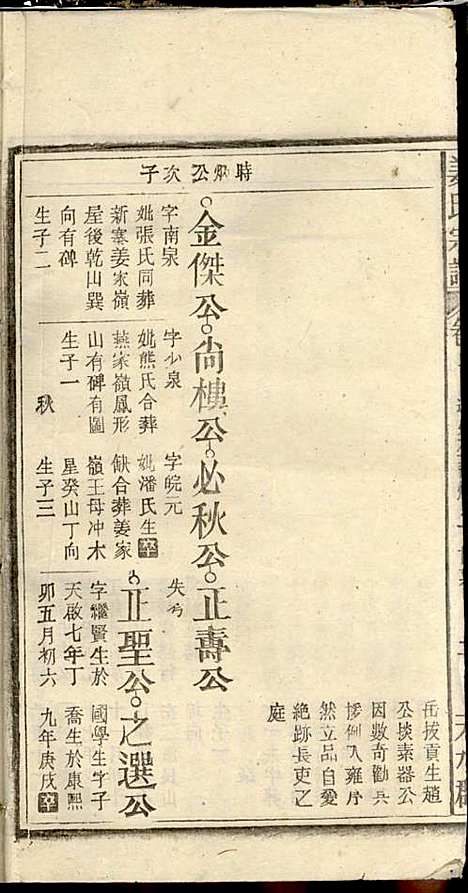 姜氏宗譜
岳拔貢生趙
公掞素器公
因數奇勸兵
慘例入雍序
然立品自愛
絕跡長吏之
庭
時烱公次子
金傑公
尚樓公
必秋公
正壽公
字南泉
妣張氏同葬
新寨姜家嶺
屋後乾山巽
向有碑
生子二
字少泉
妣熊氏合葬
燕家嶺鳳形
山有碑有圖
生子一
秋
字皖元
妣潘氏生卒
缺合葬姜家
嶺王母冲木
星癸山丁向
生子三
失考
正聖公
之選公
字繼賢生於
天啟七年丁
卯五月初六
國學生字子
喬生於康熙
九年庚戌卒